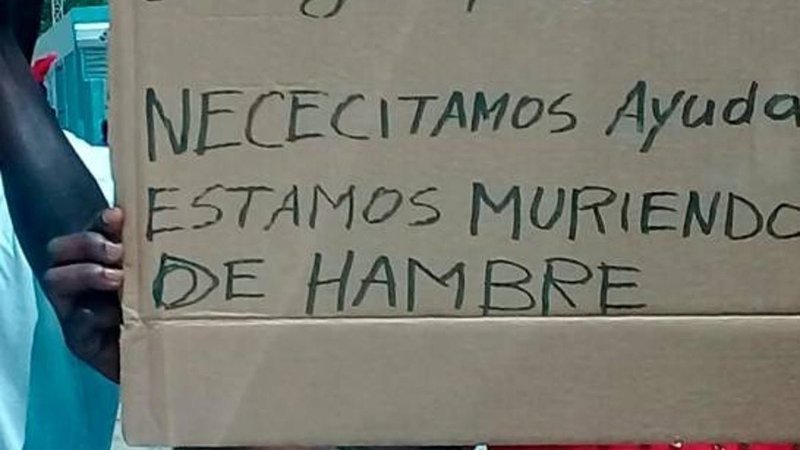 NECECITAMOS Ayuda
ESTAMOS MURIENDO
DE HAMBRE